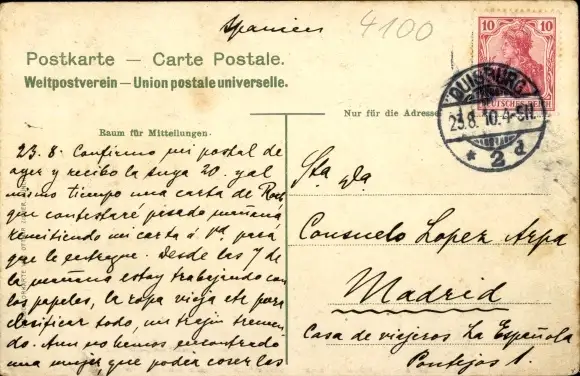 Spanien
4100
Postkarte — Carte Postale.
Weltpostverein — Union postale universelle.
10 10
DEUTSCHES REICH
DUISBURG
23.8.10.4-5N.
* 2 d
Nur für die Adresse
Raum für Mitteilungen.
23.8. Confirmo mi postal de
ayer y recibo la suya 20. y al
mismo tiempo una carta de
que contestaré pasado mañana
remitiendo mi carta á Vd. para
que le entregue. Desde las 7 de
la mañana estoy trabajando con
los papeles, la ropa vieja etc para
clasificar todo, un trajin tremen-
do. Aun no hemos encontrado
una mujer, que poder coser las
Sta. Da.
Consuelo Lopez Arpa
Madrid
Casa de viajeros La Española
Pontejos 1.